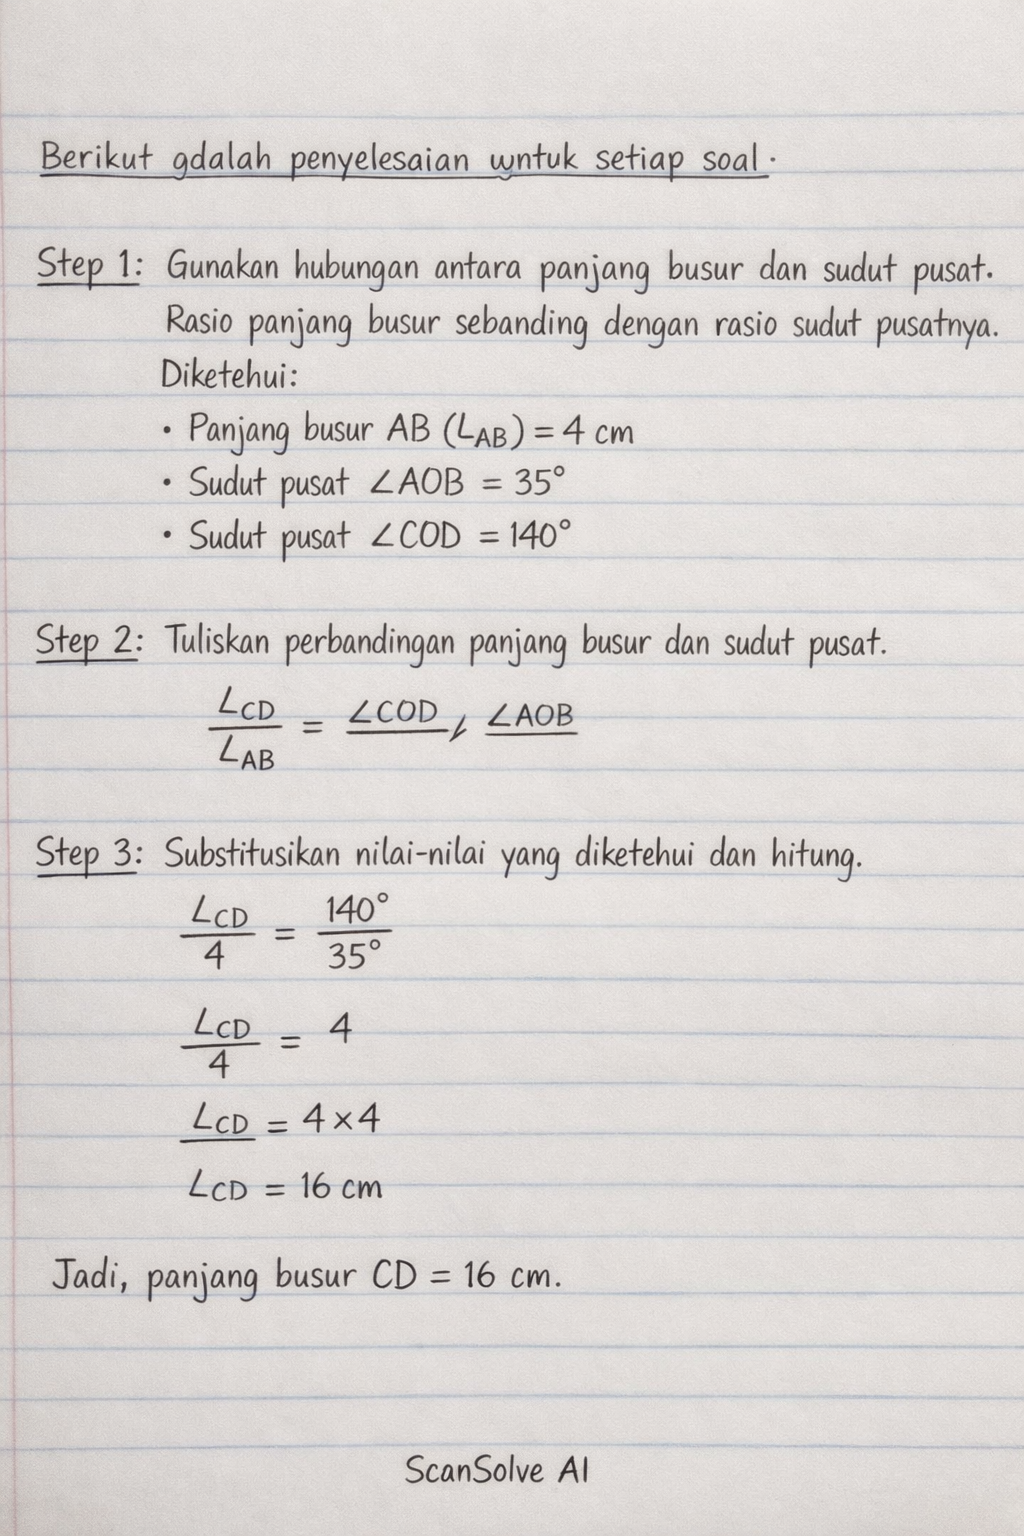 Berikut gdalah penyelesaian wntuk setiap soal.
Step 1: Gunakan hubungan antara panjang busur dan sudut pusat.
Rasio panjang busur sebanding dengan rasio sudut pusatnya.
Diketehui:
• Panjang busur AB (L_AB) = 4 cm
• Sudut pusat ∠AOB = 35°
• Sudut pusat ∠COD = 140°
Step 2: Tuliskan perbandingan panjang busur dan sudut pusat.
L_CD / L_AB = ∠COD / ∠AOB
Step 3: Substitusikan nilai-nilai yang diketehui dan hitung.
L_CD / 4 = 140° / 35°
L_CD / 4 = 4
L_CD = 4 × 4
L_CD = 16 cm
Jadi, panjang busur CD = 16 cm.
ScanSolve AI